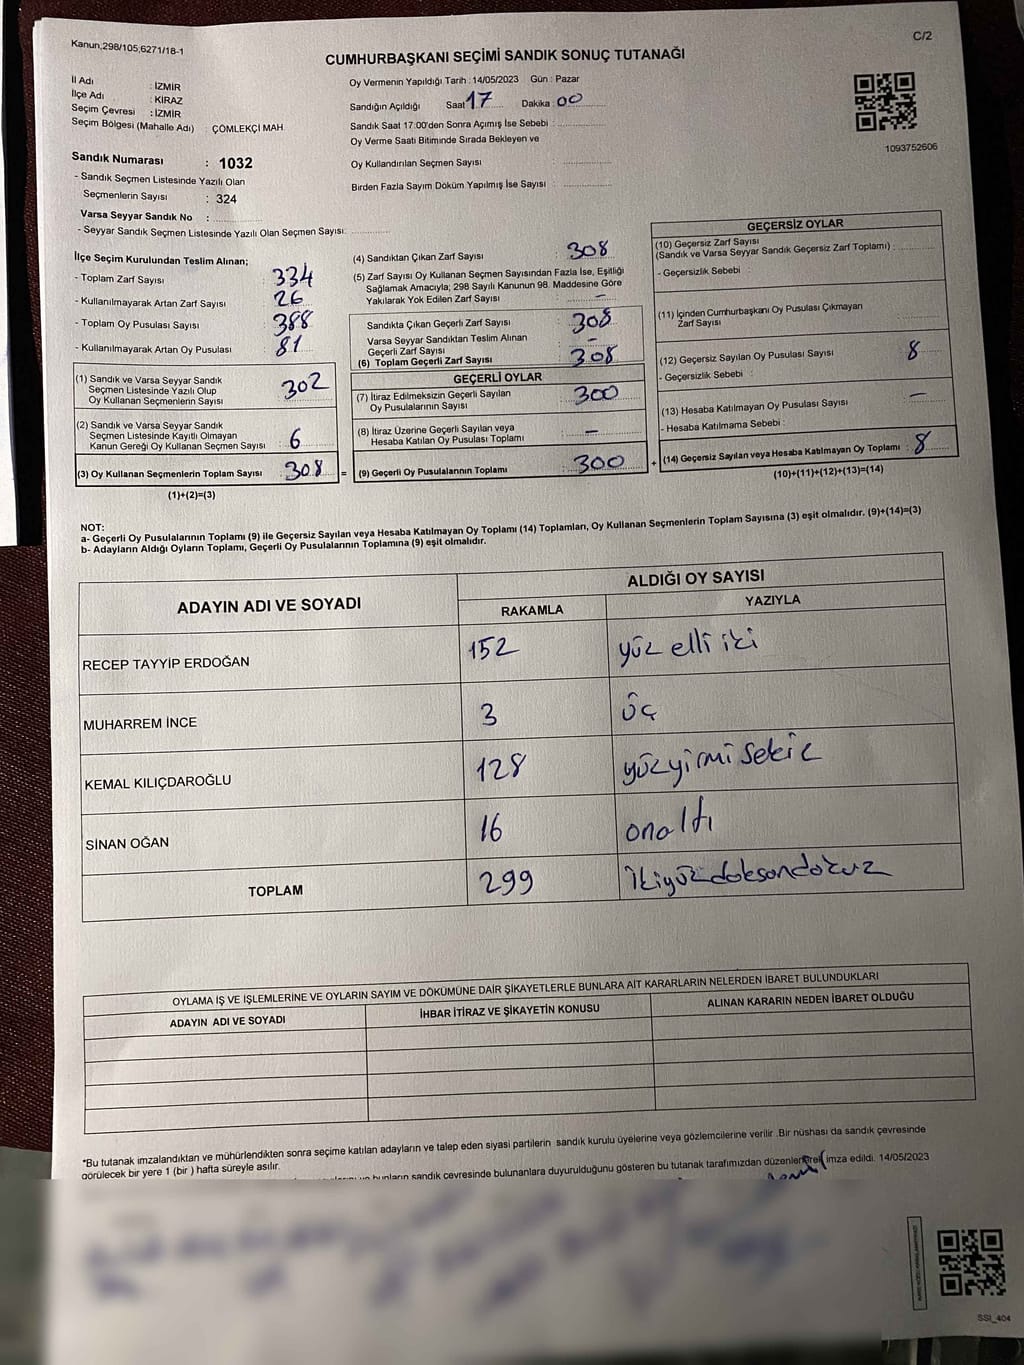 Kanun;298/105;6271/18-1
C/2
CUMHURBAŞKANI SEÇİMİ SANDIK SONUÇ TUTANAĞI
İl Adı : İZMİR
İlçe Adı : KİRAZ
Seçim Çevresi : İZMİR
Seçim Bölgesi (Mahalle Adı) ÇÖMLEKÇİ MAH
Sandık Numarası : 1032
- Sandık Seçmen Listesinde Yazılı Olan
Seçmenlerin Sayısı : 324
Varsa Seyyar Sandık No :
- Seyyar Sandık Seçmen Listesinde Yazılı Olan Seçmen Sayısı:
Oy Vermenin Yapıldığı Tarih : 14/05/2023 Gün : Pazar
Sandığın Açıldığı Saat 17 Dakika : 00
Sandık Saat 17:00'den Sonra Açımış İse Sebebi :
Oy Verme Saati Bitiminde Sırada Bekleyen ve
Oy Kullandırılan Seçmen Sayısı
Birden Fazla Sayım Döküm Yapılmış İse Sayısı :
1093752606
İlçe Seçim Kurulundan Teslim Alınan;
- Toplam Zarf Sayısı : 334
- Kullanılmayarak Artan Zarf Sayısı : 26
- Toplam Oy Pusulası Sayısı : 388
- Kullanılmayarak Artan Oy Pusulası : 81
(1) Sandık ve Varsa Seyyar Sandık
Seçmen Listesinde Yazılı Olup
Oy Kullanan Seçmenlerin Sayısı : 302
(2) Sandık ve Varsa Seyyar Sandık
Seçmen Listesinde Kayıtlı Olmayan
Kanun Gereği Oy Kullanan Seçmen Sayısı : 6
(3) Oy Kullanan Seçmenlerin Toplam Sayısı : 308
(1)+(2)=(3)
=
(4) Sandıktan Çıkan Zarf Sayısı : 308
(5) Zarf Sayısı Oy Kullanan Seçmen Sayısından Fazla İse, Eşitliği
Sağlamak Amacıyla; 298 Sayılı Kanunun 98. Maddesine Göre
Yakılarak Yok Edilen Zarf Sayısı : –
Sandıkta Çıkan Geçerli Zarf Sayısı : 308
Varsa Seyyar Sandıktan Teslim Alınan
Geçerli Zarf Sayısı : –
(6) Toplam Geçerli Zarf Sayısı : 308
GEÇERLİ OYLAR
(7) İtiraz Edilmeksizin Geçerli Sayılan
Oy Pusulalarının Sayısı : 300
(8) İtiraz Üzerine Geçerli Sayılan veya
Hesaba Katılan Oy Pusulası Toplamı : –
(9) Geçerli Oy Pusulalarının Toplamı : 300
+
GEÇERSİZ OYLAR
(10) Geçersiz Zarf Sayısı
(Sandık ve Varsa Seyyar Sandık Geçersiz Zarf Toplamı) :
- Geçersizlik Sebebi :
(11) İçinden Cumhurbaşkanı Oy Pusulası Çıkmayan
Zarf Sayısı :
(12) Geçersiz Sayılan Oy Pusulası Sayısı : 8
- Geçersizlik Sebebi :
(13) Hesaba Katılmayan Oy Pusulası Sayısı : –
- Hesaba Katılmama Sebebi :
(14) Geçersiz Sayılan veya Hesaba Katılmayan Oy Toplamı : 8
(10)+(11)+(12)+(13)=(14)
NOT:
a- Geçerli Oy Pusulalarının Toplamı (9) ile Geçersiz Sayılan veya Hesaba Katılmayan Oy Toplamı (14) Toplamları, Oy Kullanan Seçmenlerin Toplam Sayısına (3) eşit olmalıdır. (9)+(14)=(3)
b- Adayların Aldığı Oyların Toplamı, Geçerli Oy Pusulalarının Toplamına (9) eşit olmalıdır.
ADAYIN ADI VE SOYADI
ALDIĞI OY SAYISI
RAKAMLA YAZIYLA
RECEP TAYYİP ERDOĞAN 152 yüz elli iki
MUHARREM İNCE 3 üç
KEMAL KILIÇDAROĞLU 128 yüzyirmi sekiz
SİNAN OĞAN 16 onaltı
TOPLAM 299 ikiyüzdoksandokuz
OYLAMA İŞ VE İŞLEMLERİNE VE OYLARIN SAYIM VE DÖKÜMÜNE DAİR ŞİKAYETLERLE BUNLARA AİT KARARLARIN NELERDEN İBARET BULUNDUKLARI
ADAYIN ADI VE SOYADI İHBAR İTİRAZ VE ŞİKAYETİN KONUSU ALINAN KARARIN NEDEN İBARET OLDUĞU
*Bu tutanak imzalandıktan ve mühürlendikten sonra seçime katılan adayların ve talep eden siyasi partilerin sandık kurulu üyelerine veya gözlemcilerine verilir .Bir nüshası da sandık çevresinde
görülecek bir yere 1 (bir ) hafta süreyle asılır.
bunların sandık çevresinde bulunanlara duyurulduğunu gösteren bu tutanak tarafımızdan düzenlenerek imza edildi. 14/05/2023
SSI_404